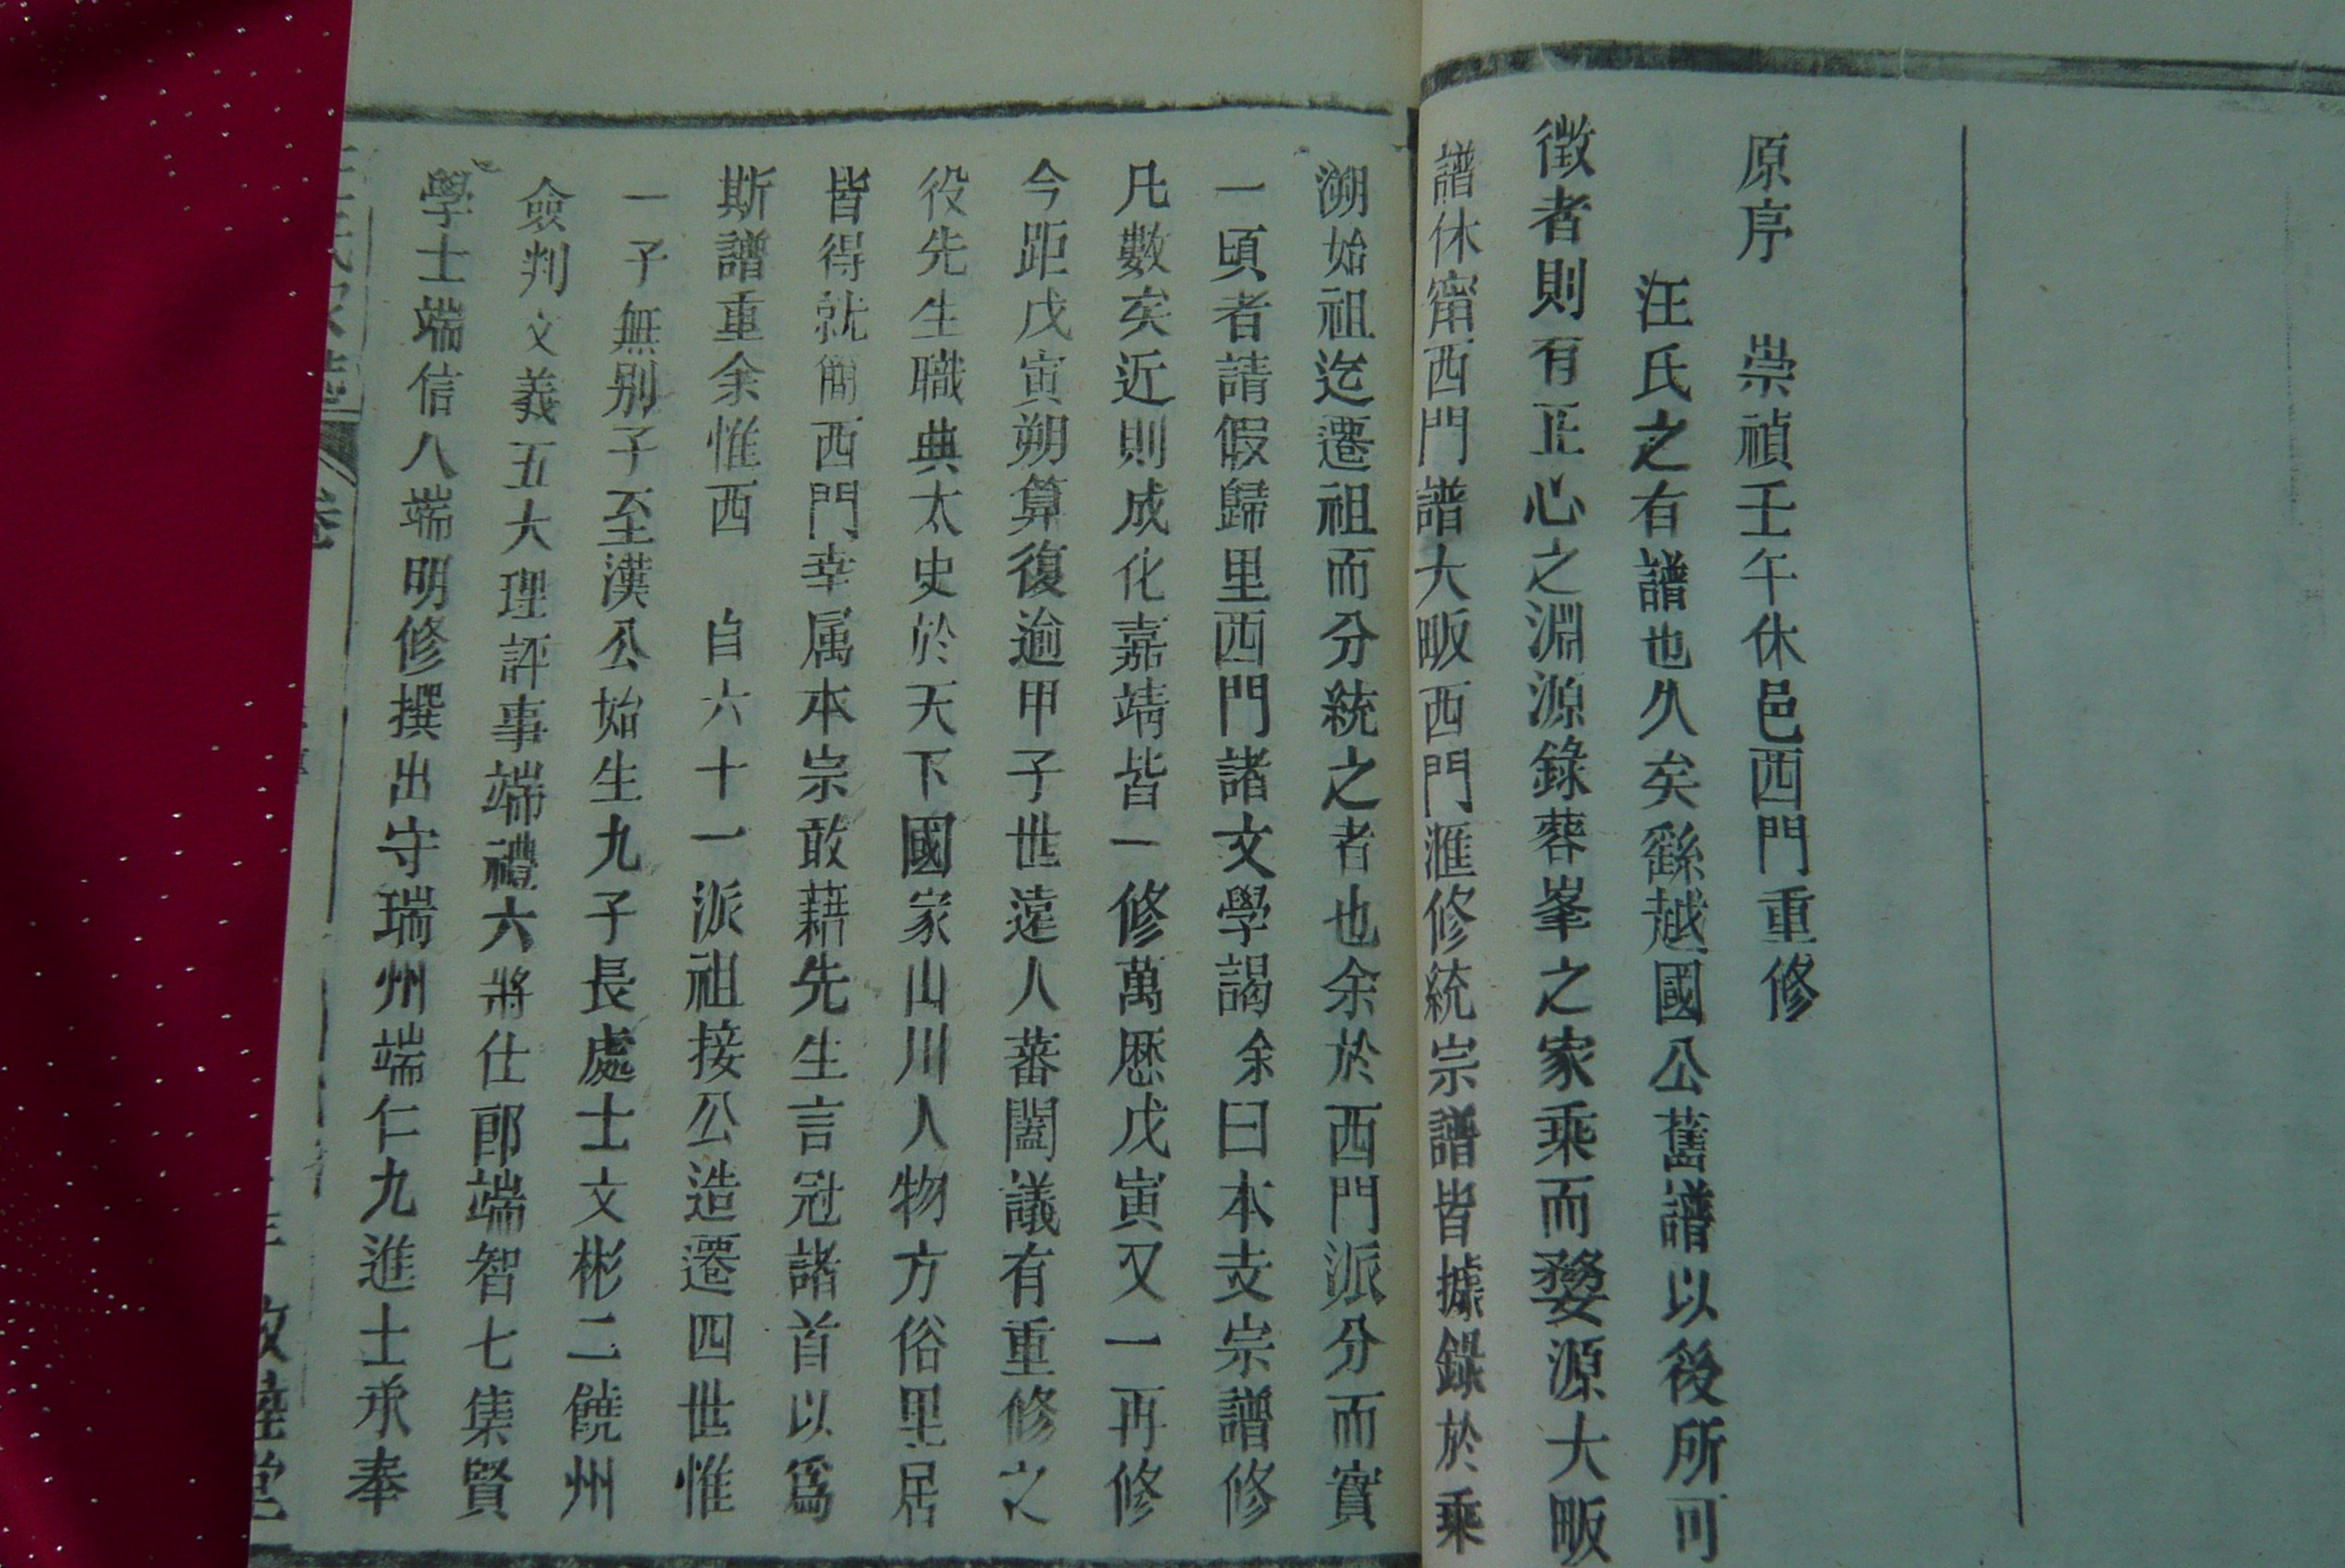 原序　崇禎壬午休邑西門重修
汪氏之有譜也久矣繇越國公舊譜以後所可
徵者則有正心之淵源錄蓉峯之家乘而婺源大畈
譜休甯西門譜大畈西門滙修統宗譜皆據錄於乘
溯始祖迄遷祖而分統之者也余於西門派分而實
一頃者請假歸里西門諸文學謁余曰本支宗譜修
凡數矣近則成化嘉靖皆一修萬厯戊寅又一再修
今距戊寅朔算復逾甲子世遠人蕃闔議有重修之
役先生職典太史於天下國家山川人物方俗里居
皆得就簡西門幸属本宗敢藉先生言冠諸首以爲
斯譜重余惟西　自六十一派祖接公造遷四世惟
一子無別子至漢公始生九子長處士文彬二饒州
僉判文義五大理評事端禮六將仕郎端智七集賢
學士端信八端明修撰出守瑞州端仁九進士承奉
卷